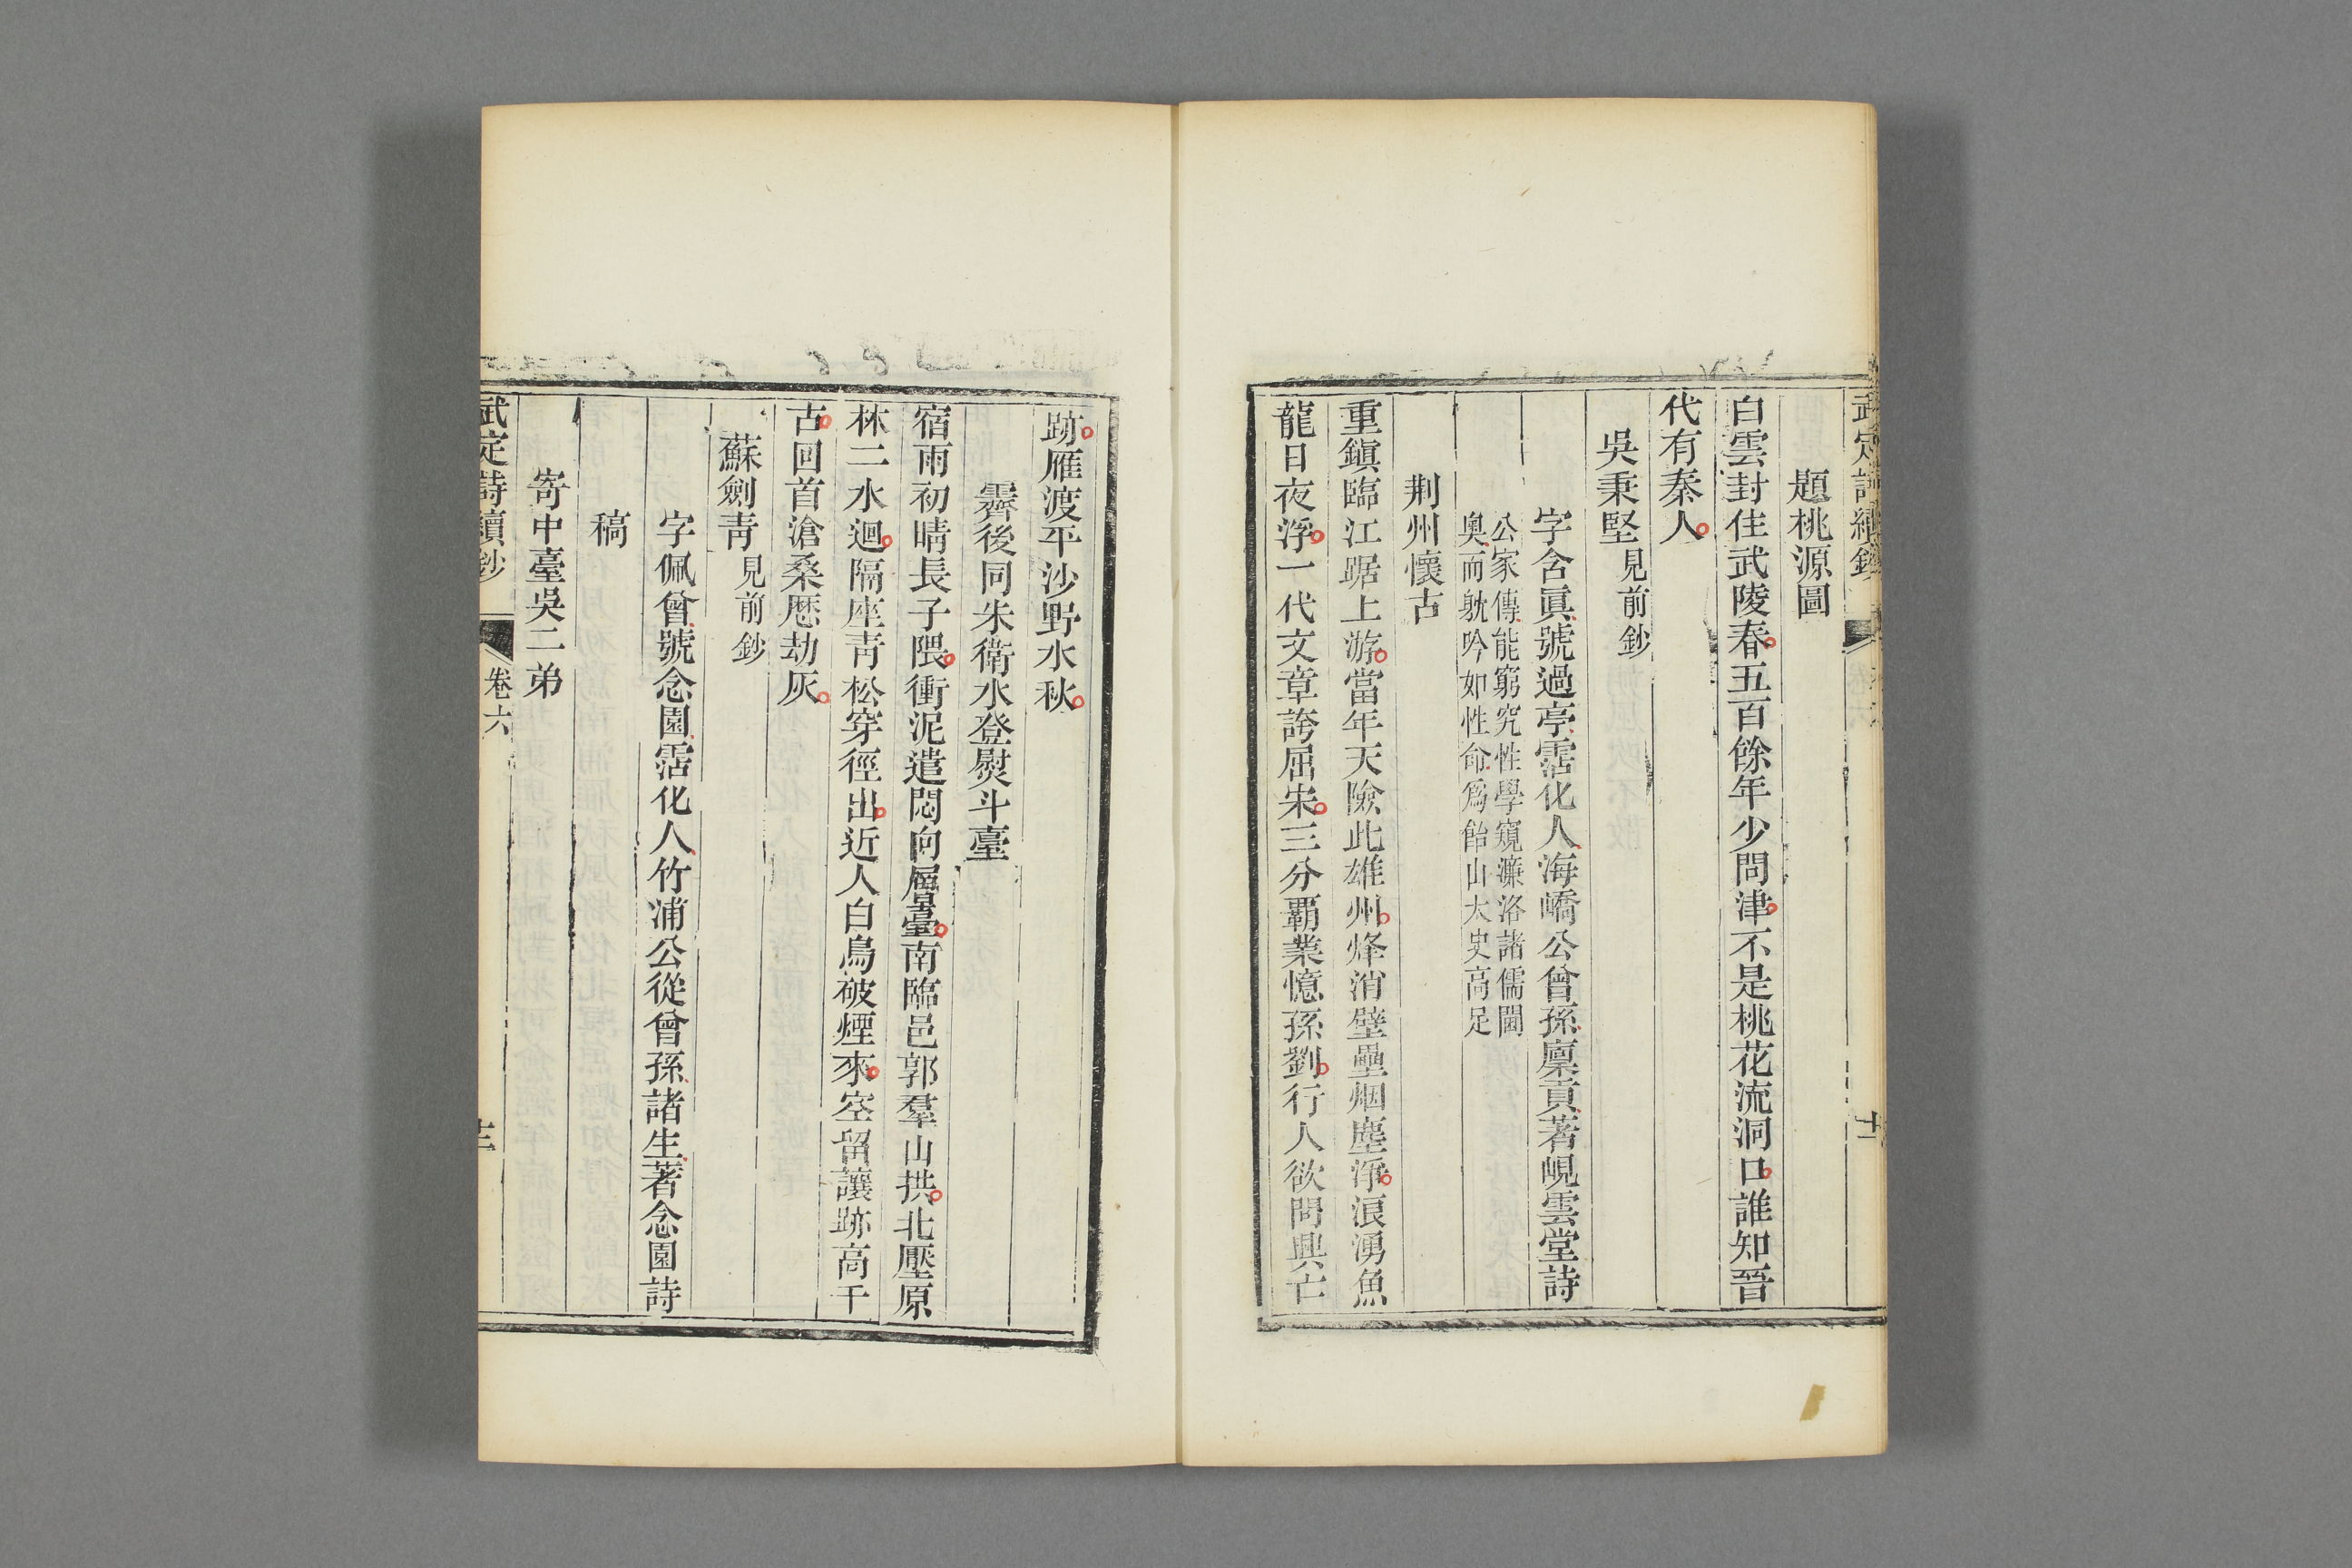 武定詩續鈔
十二
題桃源圖
白雲封住武陵春五百餘年少問津不是桃花流洞口誰知晉
代有秦人
吳秉堅見前鈔
字含眞號過亭霑化人海嶠公曾孫廩貢著峴雲堂詩
公家傳能窮究性學窺濂洛諸儒閫
奧而躭吟如性命爲飴山太史高足
荆州懷古
重鎭臨江踞上游當年天險此雄州烽消壁壘烟塵淨浪湧魚
龍日夜浮一代文章誇屈宋三分覇業憶孫劉行人欲問興亡
跡雁渡平沙野水秋
霽後同朱衛水登熨斗臺
宿雨初晴長子隈衝泥遣悶向層臺南臨邑郭羣山拱北壓原
林二水迴隔座靑松穿徑出近人白鳥破煙來空留讓跡高千
古回首滄桑歷劫灰
蘇劍靑見前鈔
字佩曾號念園霑化人竹浦公從曾孫諸生著念園詩
稿
寄中臺吳二弟
武定詩續鈔
卷六